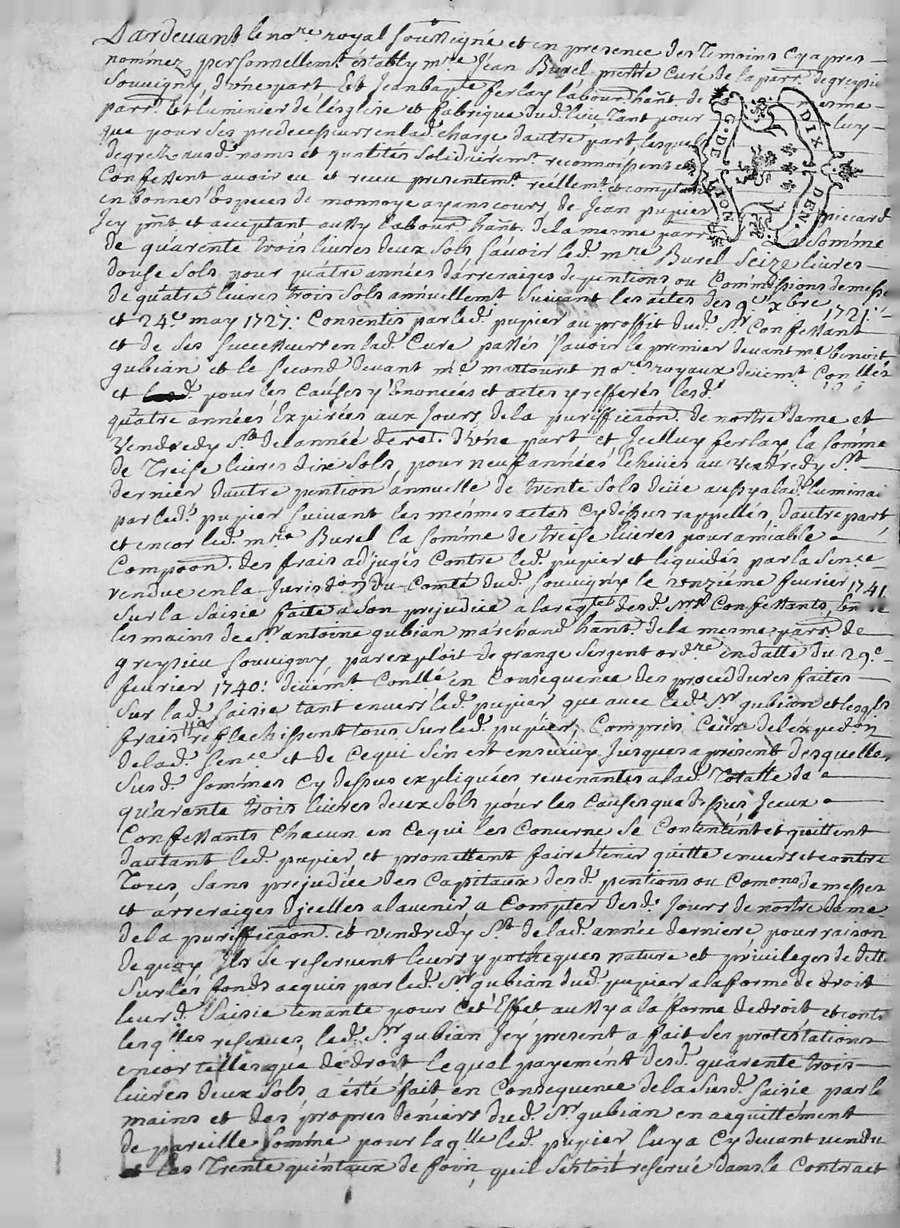 Pardevant le no.re royal soussigné et en presence des Temoins cy apres
nommez personnellem.t estably m.re Jean Burel prestre Curé de la parr. de grezieu
Souvigny, d'une part Et Jean bap.te ferlay labour. hant. de
parr. Et luminier de l'eglise et fabrique dud. lieu Tant pour luy
que pour ses predecesseurs en lad. charge d'autre part, lesquels
degrez ausd. noms et qualités solidairem.t reconnoissent et
Confessent avoir eu et receu presentem.t réellem.t et comptant
en bonnes Especes de monnoye ayans cours, de Jean pupier
Icy p.nt et acceptant aussy labour. hant. de la mesme parr. La Somme
de quarente trois livres deux sols, savoir led. m.re Burel Seize livres
douse sols pour quatre années d'arreraiges de pentions ou Commissions de messes
de quatre livres trois sols annuellem.t suivant les actes des 9.e xbre 1721.
et 24.e may 1727: Consentis par led. pupier au proffit dud. S.r Confessant
et de ses successeurs en lad. Cure passés savoir le premier devant m.e benoit
gubian et le second devant m.e mattouret no.res royaux deuem.t Con.llés
et pour les Causes y Enoncées et actes y refferés lesd.
quatre années Expirées aux Jours de la puriffica~on de nostre dame et
Vendredy S.t de l'année der.re d'une part et Icelluy ferlay la somme
de Treise livres dix sols, pour neuf années Echeües au Vendredy S.t
dernier d'autre pention annuelle de trente sols deüe aussy a lad. luminai
par led. pupier suivant les mesmes actes cy dessus rappellés, d'autre part
et encor led. m.re Burel la somme de treise livres pour amiable
Compo~on. des frais adjugés Contre led. pupier et liquidés par la Sen.ce
rendue en la Jurisd~on du Comté dud. Souvigny le onzième fevrier 1741
sur la saisie faite a son prejudice a la reqte desd. S.rs Confessants, en
les mains de S.r antoine gubian marchand hant. de la mesme parr. de
grezieu Souvigny, par exploit de grange sergent ord.re en datte du 29.e
fevrier 1740: deuem.t Con.llé en Consequence des proceddures faites
sur lad. saisie tant envers led. pupier que avec led. S.r gubian et lesq.ls
frais reflechissent tous sur led. pupier, Compris Ceux de l'expedi~on
de lad. Sen.ce et de Ce qui s'en est ensuivy Jusques a present desquelles
susd. sommes cy dessus expliquées revenantes a lad. Totalle de
quarente trois livres deux sols pour les Causes que dessus Iceux
Confessants Chacun en Ce qui les Concerne se Contentent et quittent
d'autant led. pupier et promettent faire tenir quitte envers et contre
Tous, sans prejudice des Capitaux desd. pentions ou Com~ons de messes
et arreraiges d'icelles a l'avenir a Compter desd. Jours de nostre dame
de la puriffica~on. et Vendredy S.t de lad. année derniere pour raison
de quoy Ils se reservent leurs ypotheques nature et privileges de dett
sur les fonds acquis par led. S.r gubian dud. pupier a la forme de droit
leurd. Saisie tenante pour Cet Effet aussy a la forme de droit et contre
lesq.lles reserves, led. S.r gubian Icy present a fait ses protestations
encor telles que de droit lequel payement desd. quarente trois
livres deux sols, a été fait en Consequence de la susd. saisie par le
mains et des propres deniers dud. S.r gubian en acquittement
de pareille somme pour laq.lle led. pupier luy a Cy devant vendu
les Trente quintaux de foin, qu'il s'estoit reservé dans le Contract
G. DE LION
DIX DEN.